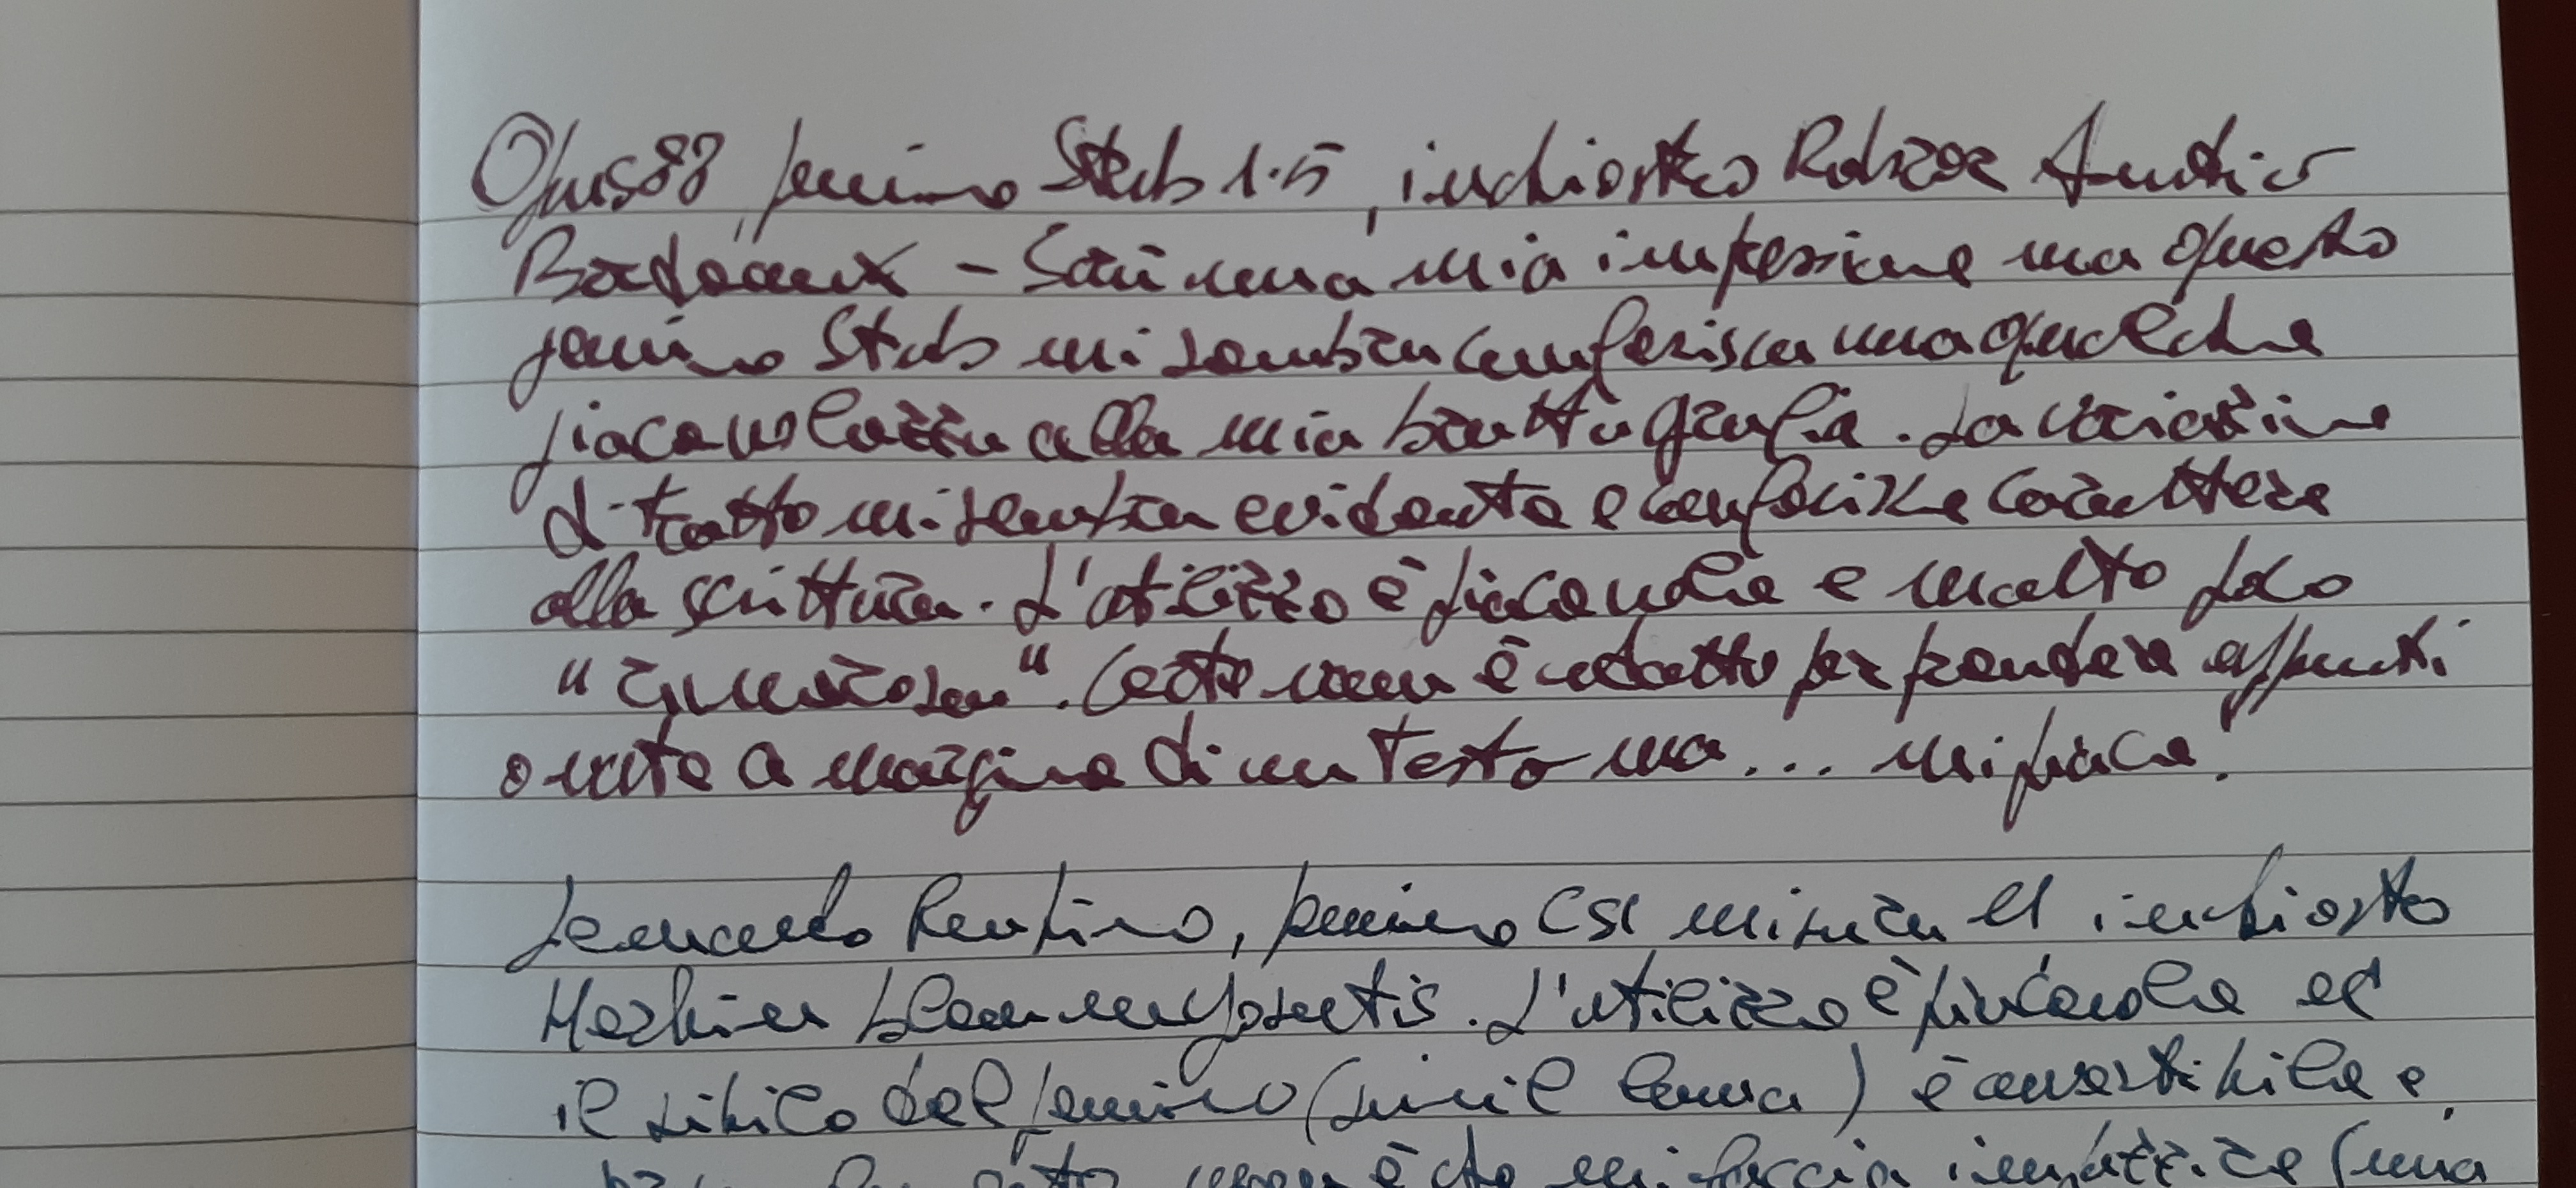 Opus 88, pennino Stub 1.5, inchiostro Robzoz Antico
Bordeaux - Sarà una mia impressione ma questo
pennino Stub mi sembra conferisca una qualche
piacevolezza alla mia brutta grafia. La variazione
di tratto mi sembra evidente e conferisce carattere
alla scrittura. L'utilizzo è piacevole e molto poco
"rumoroso". Certo non è adatto per prendere appunti
o note a margine di un testo ma... mi piace!
Leonardo Pentino, pennino CSI misura EF inchiostro
L'utilizzo è piacevole ed
il sibilo del pennino (simil lama) è avvertibile e,
non è che mi faccia impazzire (una